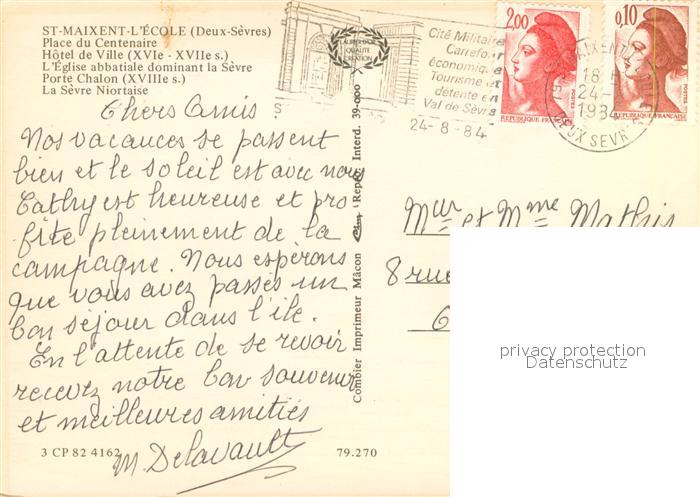 ST-MAIXENT-L'ÉCOLE (Deux-Sèvres)
Place du Centenaire
Hôtel de Ville (XVIe - XVIIe s.)
L'Église abbatiale dominant la Sèvre
Porte Chalon (XVIIIe s.)
La Sèvre Niortaise
Chers Amis
Nos vacances se passent
bien et le soleil est avec nous
Cathy est heureuse et pro
fite pleinement de la
campagne. Nous espérons
que vous avez passés un
bon séjour dans l'ile.
En l'attente de se revoir
recevez notre bon souvenir
et meilleures amitiés
M. Delavault
3 CP 82 4162
79.270
Combier Imprimeur Mâcon Cim Repr. Interd. 39-000
LAUREAT DE LA
QUALITÉ
CRÉATION
Cité Militaire
Carrefour
économique
Tourisme et
détente en
Val de Sèvre
24-8-84
2,00
REPUBLIQUE FRANÇAISE
POSTES
0,10
REPUBLIQUE FRANÇAISE
POSTES
MAIXENT
18 H
24-
1984
DEUX SEVRES
Mur et Mme Mathis
8 rue
privacy protection
Datenschutz